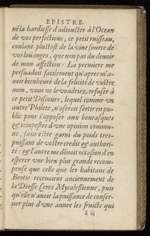 EPISTRE.
né la hardiesse d'adiouster à l'Ocean
de vos perfections, ce petit ruisseau,
coulant plustost de la viue source de
vos louanges, que non pas du demain
de mon affection: La premiere me
persuadant facilement qu'apres m'a-
uoir bienheuré de la felicité de vostre
nom, vous ne voudriez, refuser à
ce petit Discours, lequel comme vn
autre Phaëte, n'oseroit sortir en pu-
blic pour s'opposer aux bourasques
& tempestes d'vne opinion commu-
ne, sans estre garni du poids tres-
puissant de vostre credit & authori-
té: & l'autre me donnāt iuste fond d'en
esperer vne bien plus grande recom-
pense que celle que les habitans de
receuoient anciennement de
la Deesse Ceres Mycalessienne, puis
qu'elle n'auoit la puissance de conser-
uer plus d'vne annee les fruicts qui